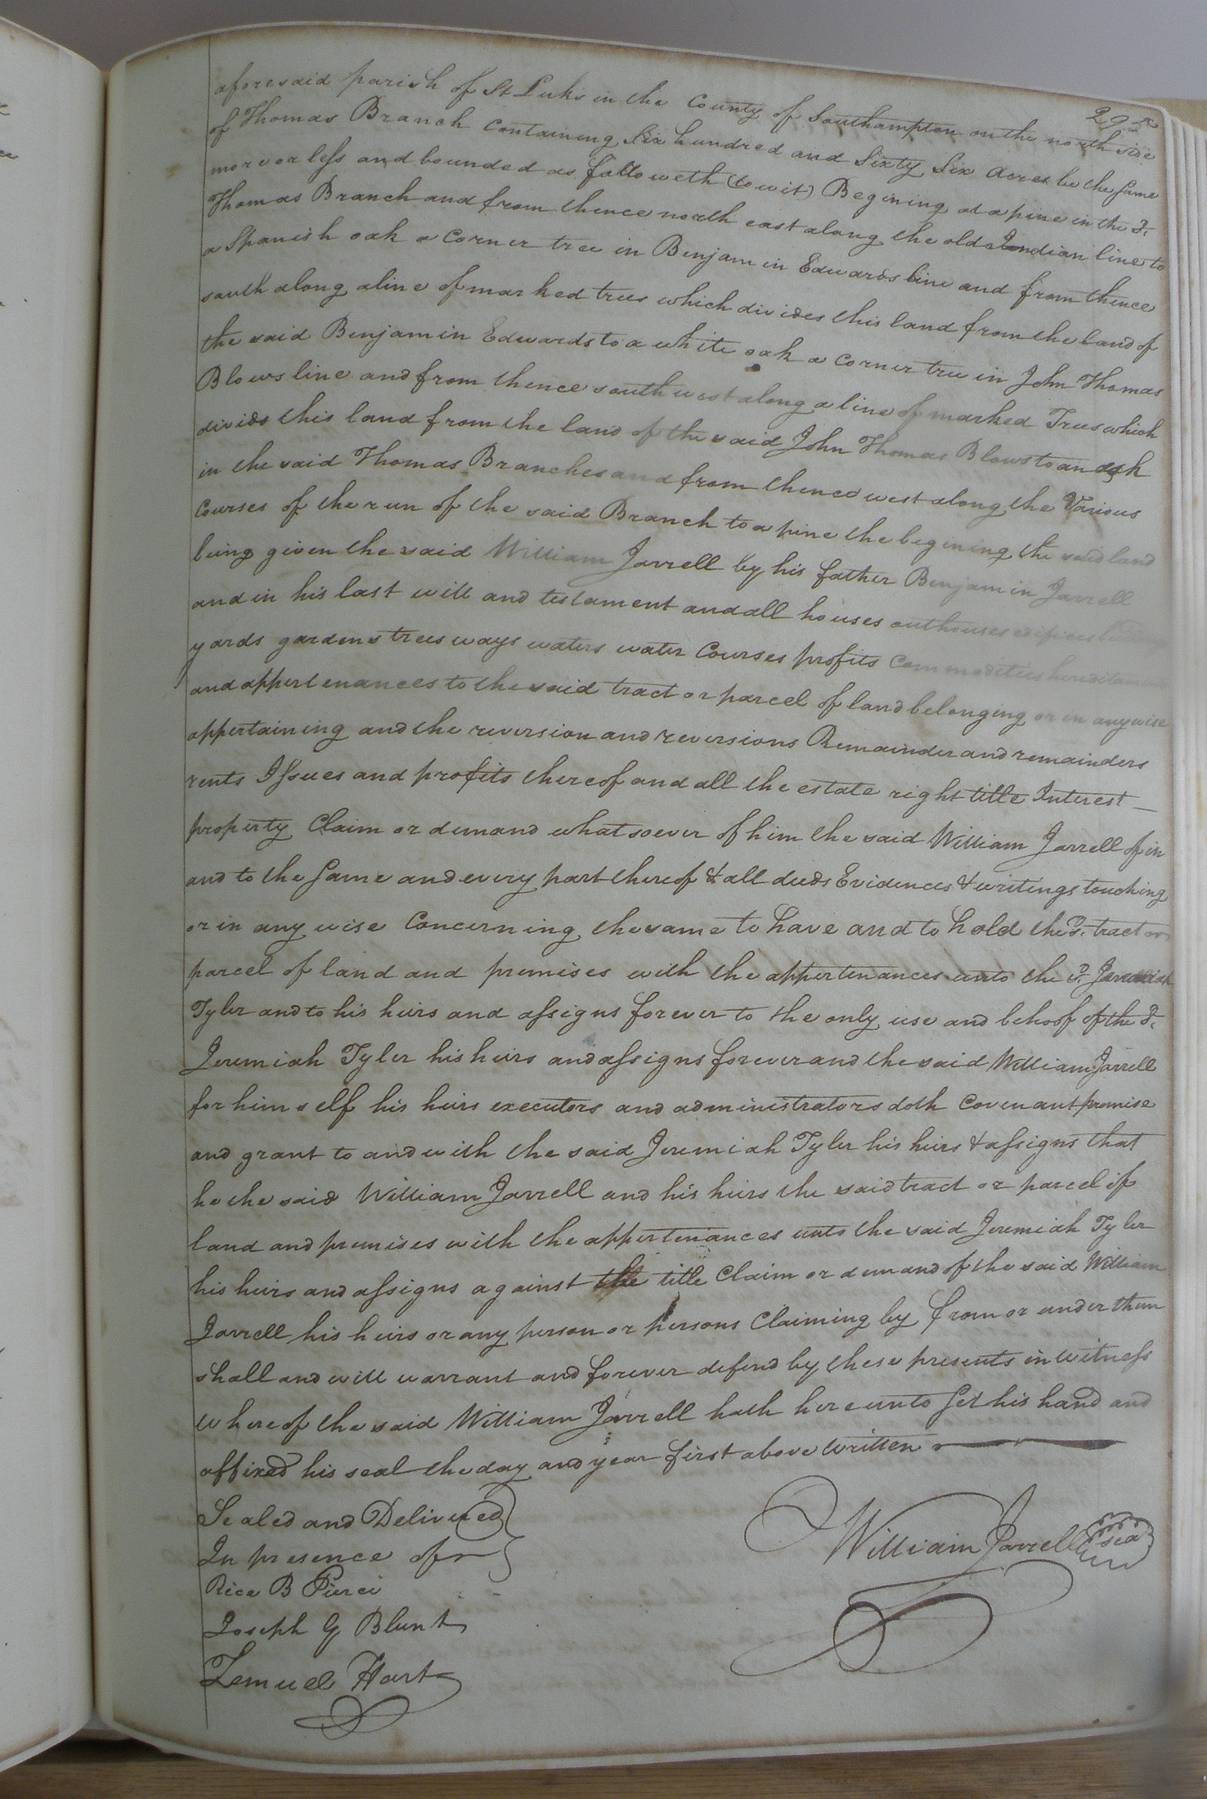 aforesaid parish of St Luks in the County of Southampton on the north side
of Thomas Branch Containing Six hundred and Sixty Six Acres be the same
more or less and bounded as followeth (to wit) Begining at a pine in the Sd.
Thomas Branch and from thence north east along the old Indian line to
a Spanish oak a Corner tree in Benjamin Edwards line and from thence
south along a line of marked trees which divides this land from the land of
the said Benjamin Edwards to a white oak a corner tree in John Thomas
Blows line and from thence south west along a line of marked Trees which
divids this land from the land of the said John Thomas Blows to an ash
in the said Thomas Branches and from thence west along the Various
Courses of the run of the said Branch to a pine the begining the said land
being given the said William Jarrell by his father Benjamin Jarrell
and in his last will and testament and all houses outhouses edifices
yards gardens trees ways waters water Courses profits Commodities
and appertenances to the said tract or parcel of land belonging or in anywise
appertaining and the reversion and reversions Remainder and remainders
rents Issues and profits thereof and all the estate right title Interest
property Claim or demand whatsoever of him the said William Jarrell of in
and to the same and every part thereof & all deeds Evidences & writings touching
or in any wise Concerning the same to have and to hold the Sd. tract or
parcel of land and premises with the appertenances unto the sd. Jeremiah
Tyler and to his heirs and assigns forever to the only use and behoof of the Sd.
Jeremiah Tyler his heirs and assigns forever and the said William Jarrell
for himself his heirs executors and administrators doth Covenant promise
and grant to and with the said Jeremiah Tyler his heirs & assigns that
he the said William Jarrell and his heirs the said tract or parcel of
land and premises with the appertenances unto the said Jeremiah Tyler
his heirs and assigns against the title Claim or demand of the said William
Jarrell his heirs or any person or persons Claiming by from or under them
shall and will warrant and forever defend by these presents in witness
whereof the said William Jarrell hath hereunto set his hand and
affixed his seal the day and year first above written
Sealed and Delivered
In presence of
Rice B Pierce
Joseph G Blunt
Lemuel Hart
William Jarrell seal